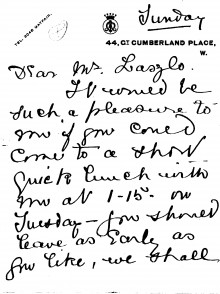 Sunday
TEL. 2046 MAYFAIR.
44, GT CUMBERLAND PLACE,
W.
Dear Mr. Laszlo.
It would be
such a pleasure to
me if you could
come to a short
quick lunch with
me at 1-15. on
Tuesday - you should
leave as Early as
you like, we shall